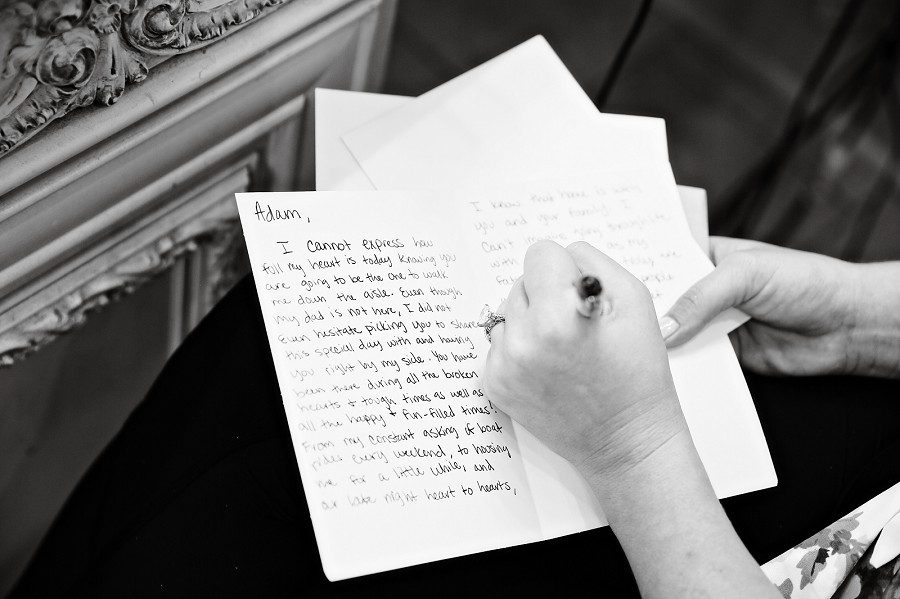 Adam,
I cannot express how
full my heart is today knowing you
are going to be the one to walk
me down the aisle. Even though
my dad is not here, I did not
even hesitate picking you to share
this special day with and having
you right by my side. You have
been there during all the broken
hearts + tough times as well as
all the happy + fun-filled times!
From my constant asking of boat
rides every weekend, to having
me for a little while, and
our late night heart to hearts,
I know that home is
you and your family. I
can't
with